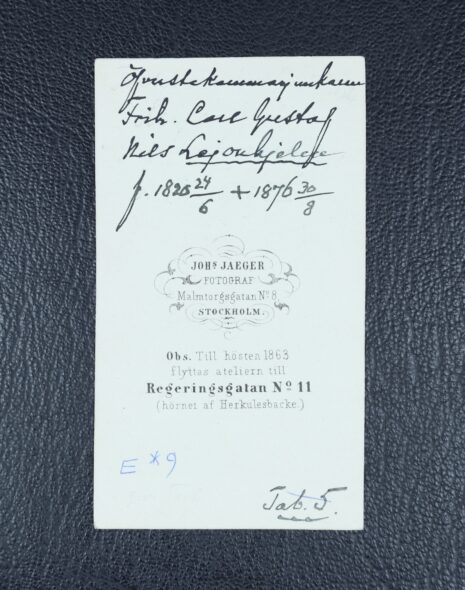 Öfverstekammarjunkaren
Frih. Carl Gustaf
Nils Lejonhjelm
f. 1820 24/6 + 1876 30/8
JOHS JAEGER
FOTOGRAF
Malmtorgsgatan No 8
STOCKHOLM.
Obs. Till hösten 1863
flyttas ateliern till
Regeringsgatan No 11
(hörnet af Herkulesbacke.)
E * 9
Tab. 5.